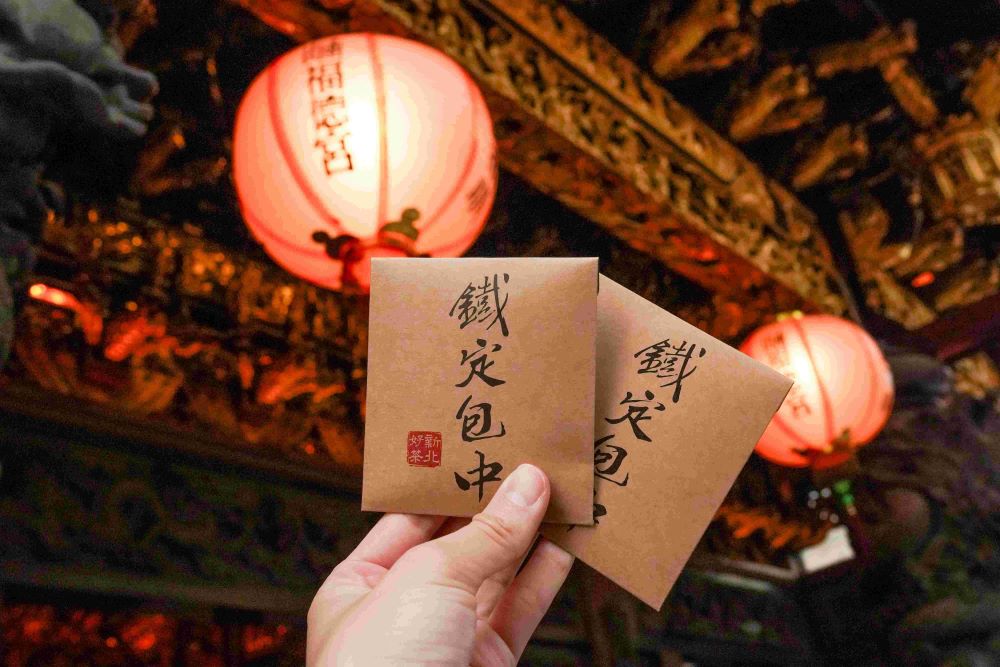 福德宮
鐵定包中
新北
好茶
鐵定包